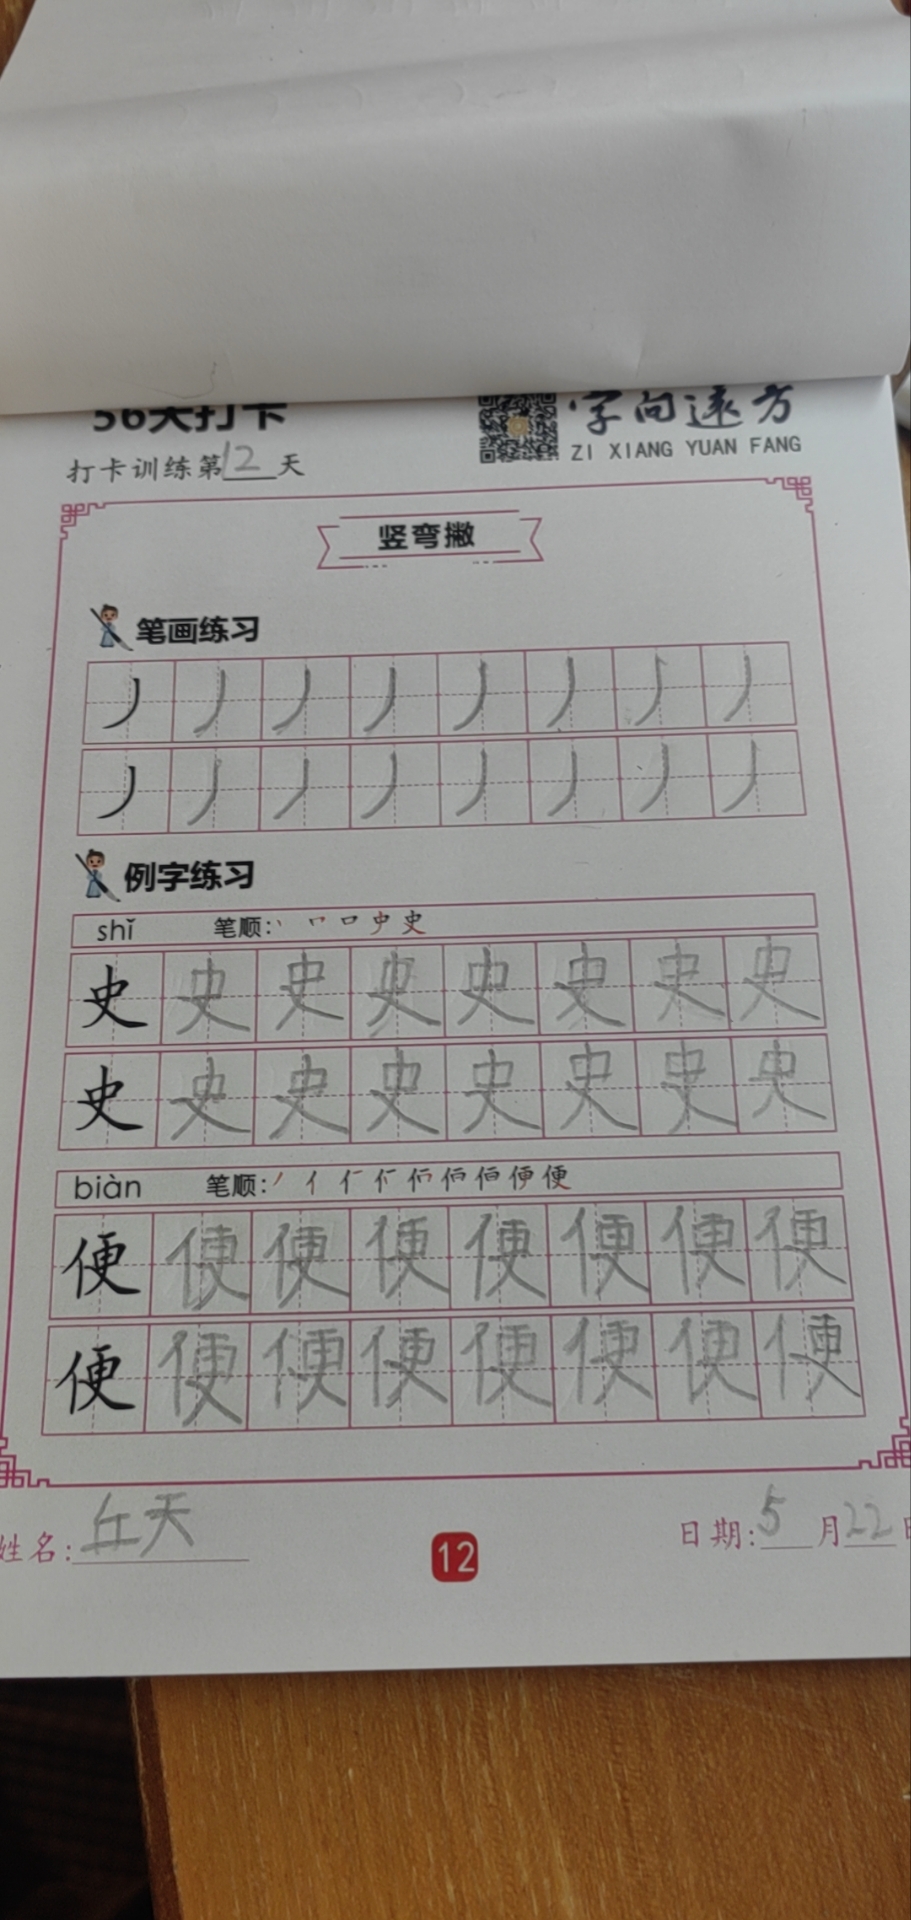 56天打卡
字向远方
ZI XIANG YUAN FANG
打卡训练第12天
竖弯撇
笔画练习
丿丿丿丿丿丿丿丿
丿丿丿丿丿丿丿丿
例字练习
shǐ 笔顺:丶 史
史史史史史史史史
史史史史史史史史
biàn 笔顺:丿亻 便
便便便便便便便便
便便便便便便便便
姓名:丘天
12
日期:5月22日